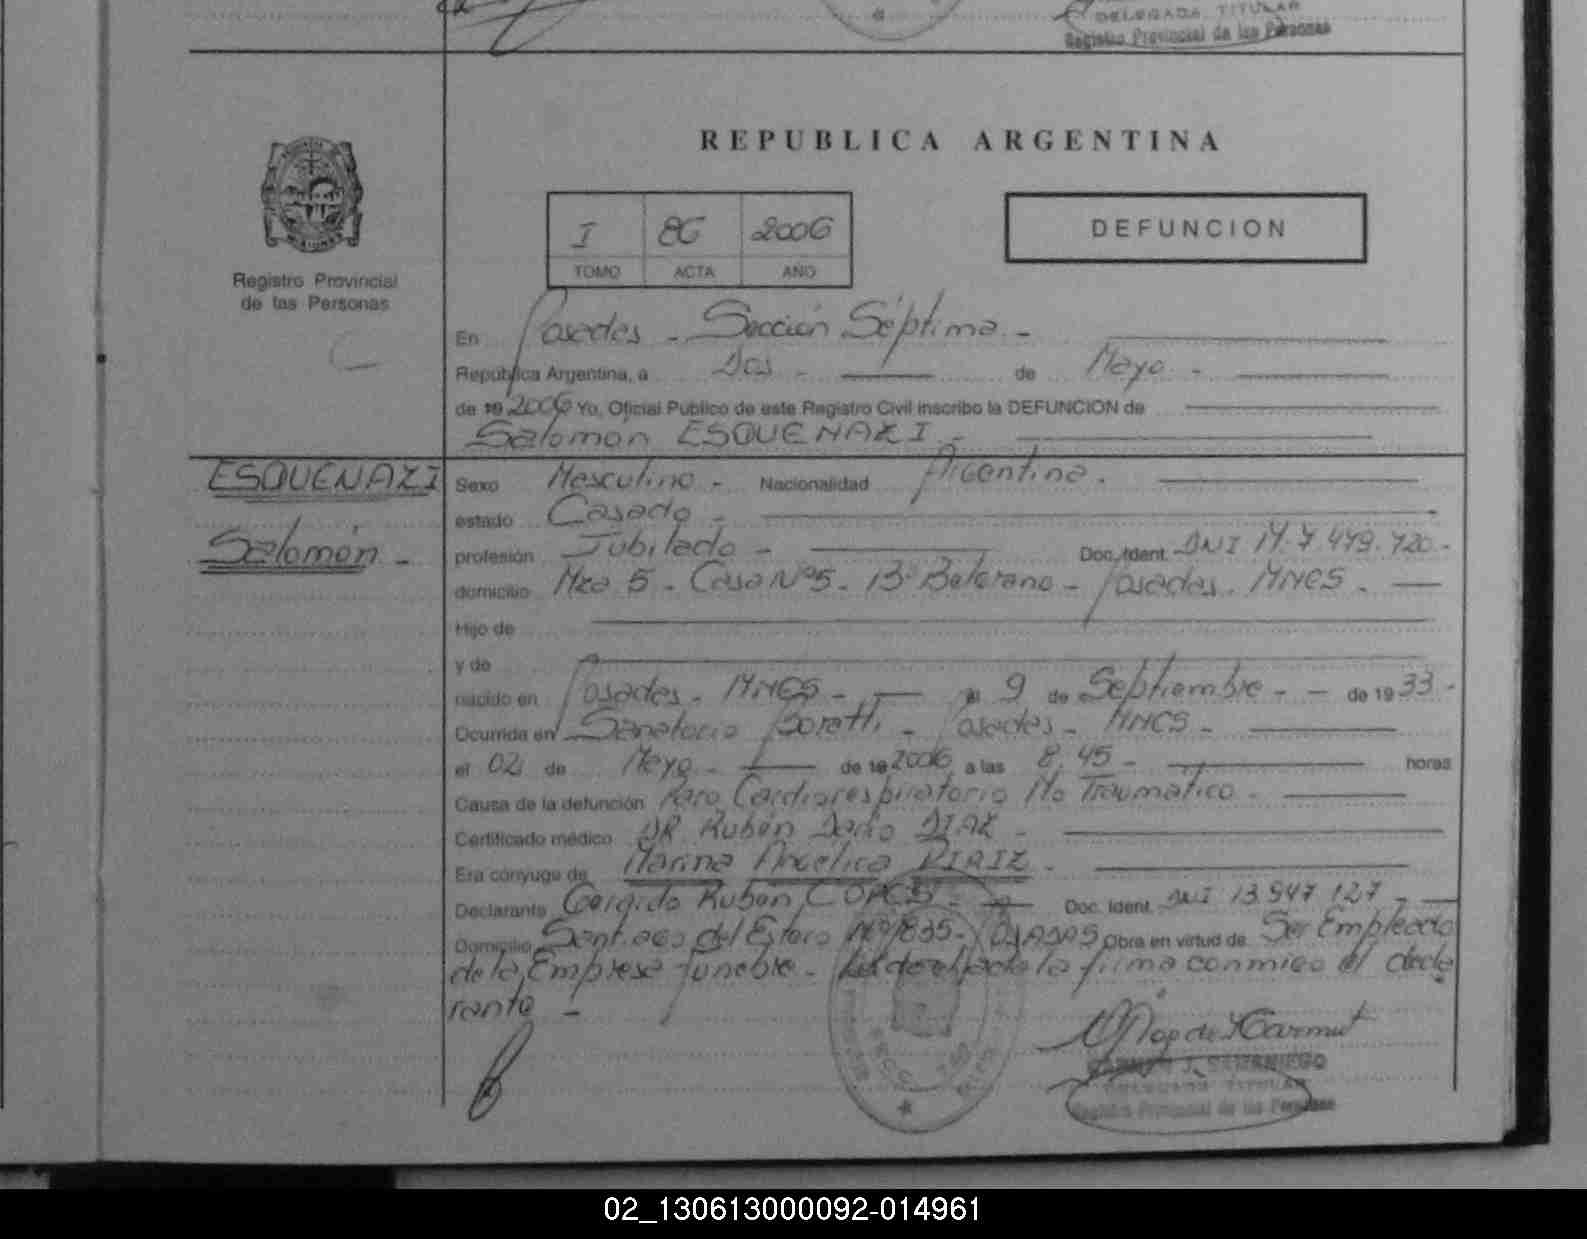 DELEGADA TITULAR
Registro Provincial de las Personas
REPUBLICA ARGENTINA
I 86 2006
TOMO ACTA AÑO
DEFUNCION
Registro Provincial
de las Personas
En Posadas - Sección Séptima -
República Argentina, a Dos - de Mayo -
de 19 2006 Yo, Oficial Público de este Registro Civil inscribo la DEFUNCION de
Salomón ESQUENAZI -
ESQUENAZI
Salomón -
Sexo Masculino - Nacionalidad Argentina.
estado Casado -
profesión Jubilado - Doc. Ident. DNI M. 7.479.720 -
domicilio Mza 5 - Casa Nº 5 - Bº Belgrano - Posadas - MNES -
Hijo de
y de
nacido en Posadas - MNES - el 9 de Septiembre - - de 19 33 -
Ocurrida en Sanatorio Boratti - Posadas - MNES -
el 02 de Mayo - de 19 2006 a las 8.45 - horas
Causa de la defunción Paro Cardiorespiratorio No Traumático -
Certificado médico DR Rubén Darío DIAZ -
Era cónyuge de Marina Angélica
Declarante Rubén Doc. Ident. DNI 13.947.127 -
Domicilio Santiago del Estero Nº 1835 - Obra en virtud de Ser Empleado
de la Empresa fúnebre - la firma conmigo el decla
rante -
CARMEN J. SAMANIEGO
DELEGADA TITULAR
Registro Provincial de las Personas
02_130613000092-014961